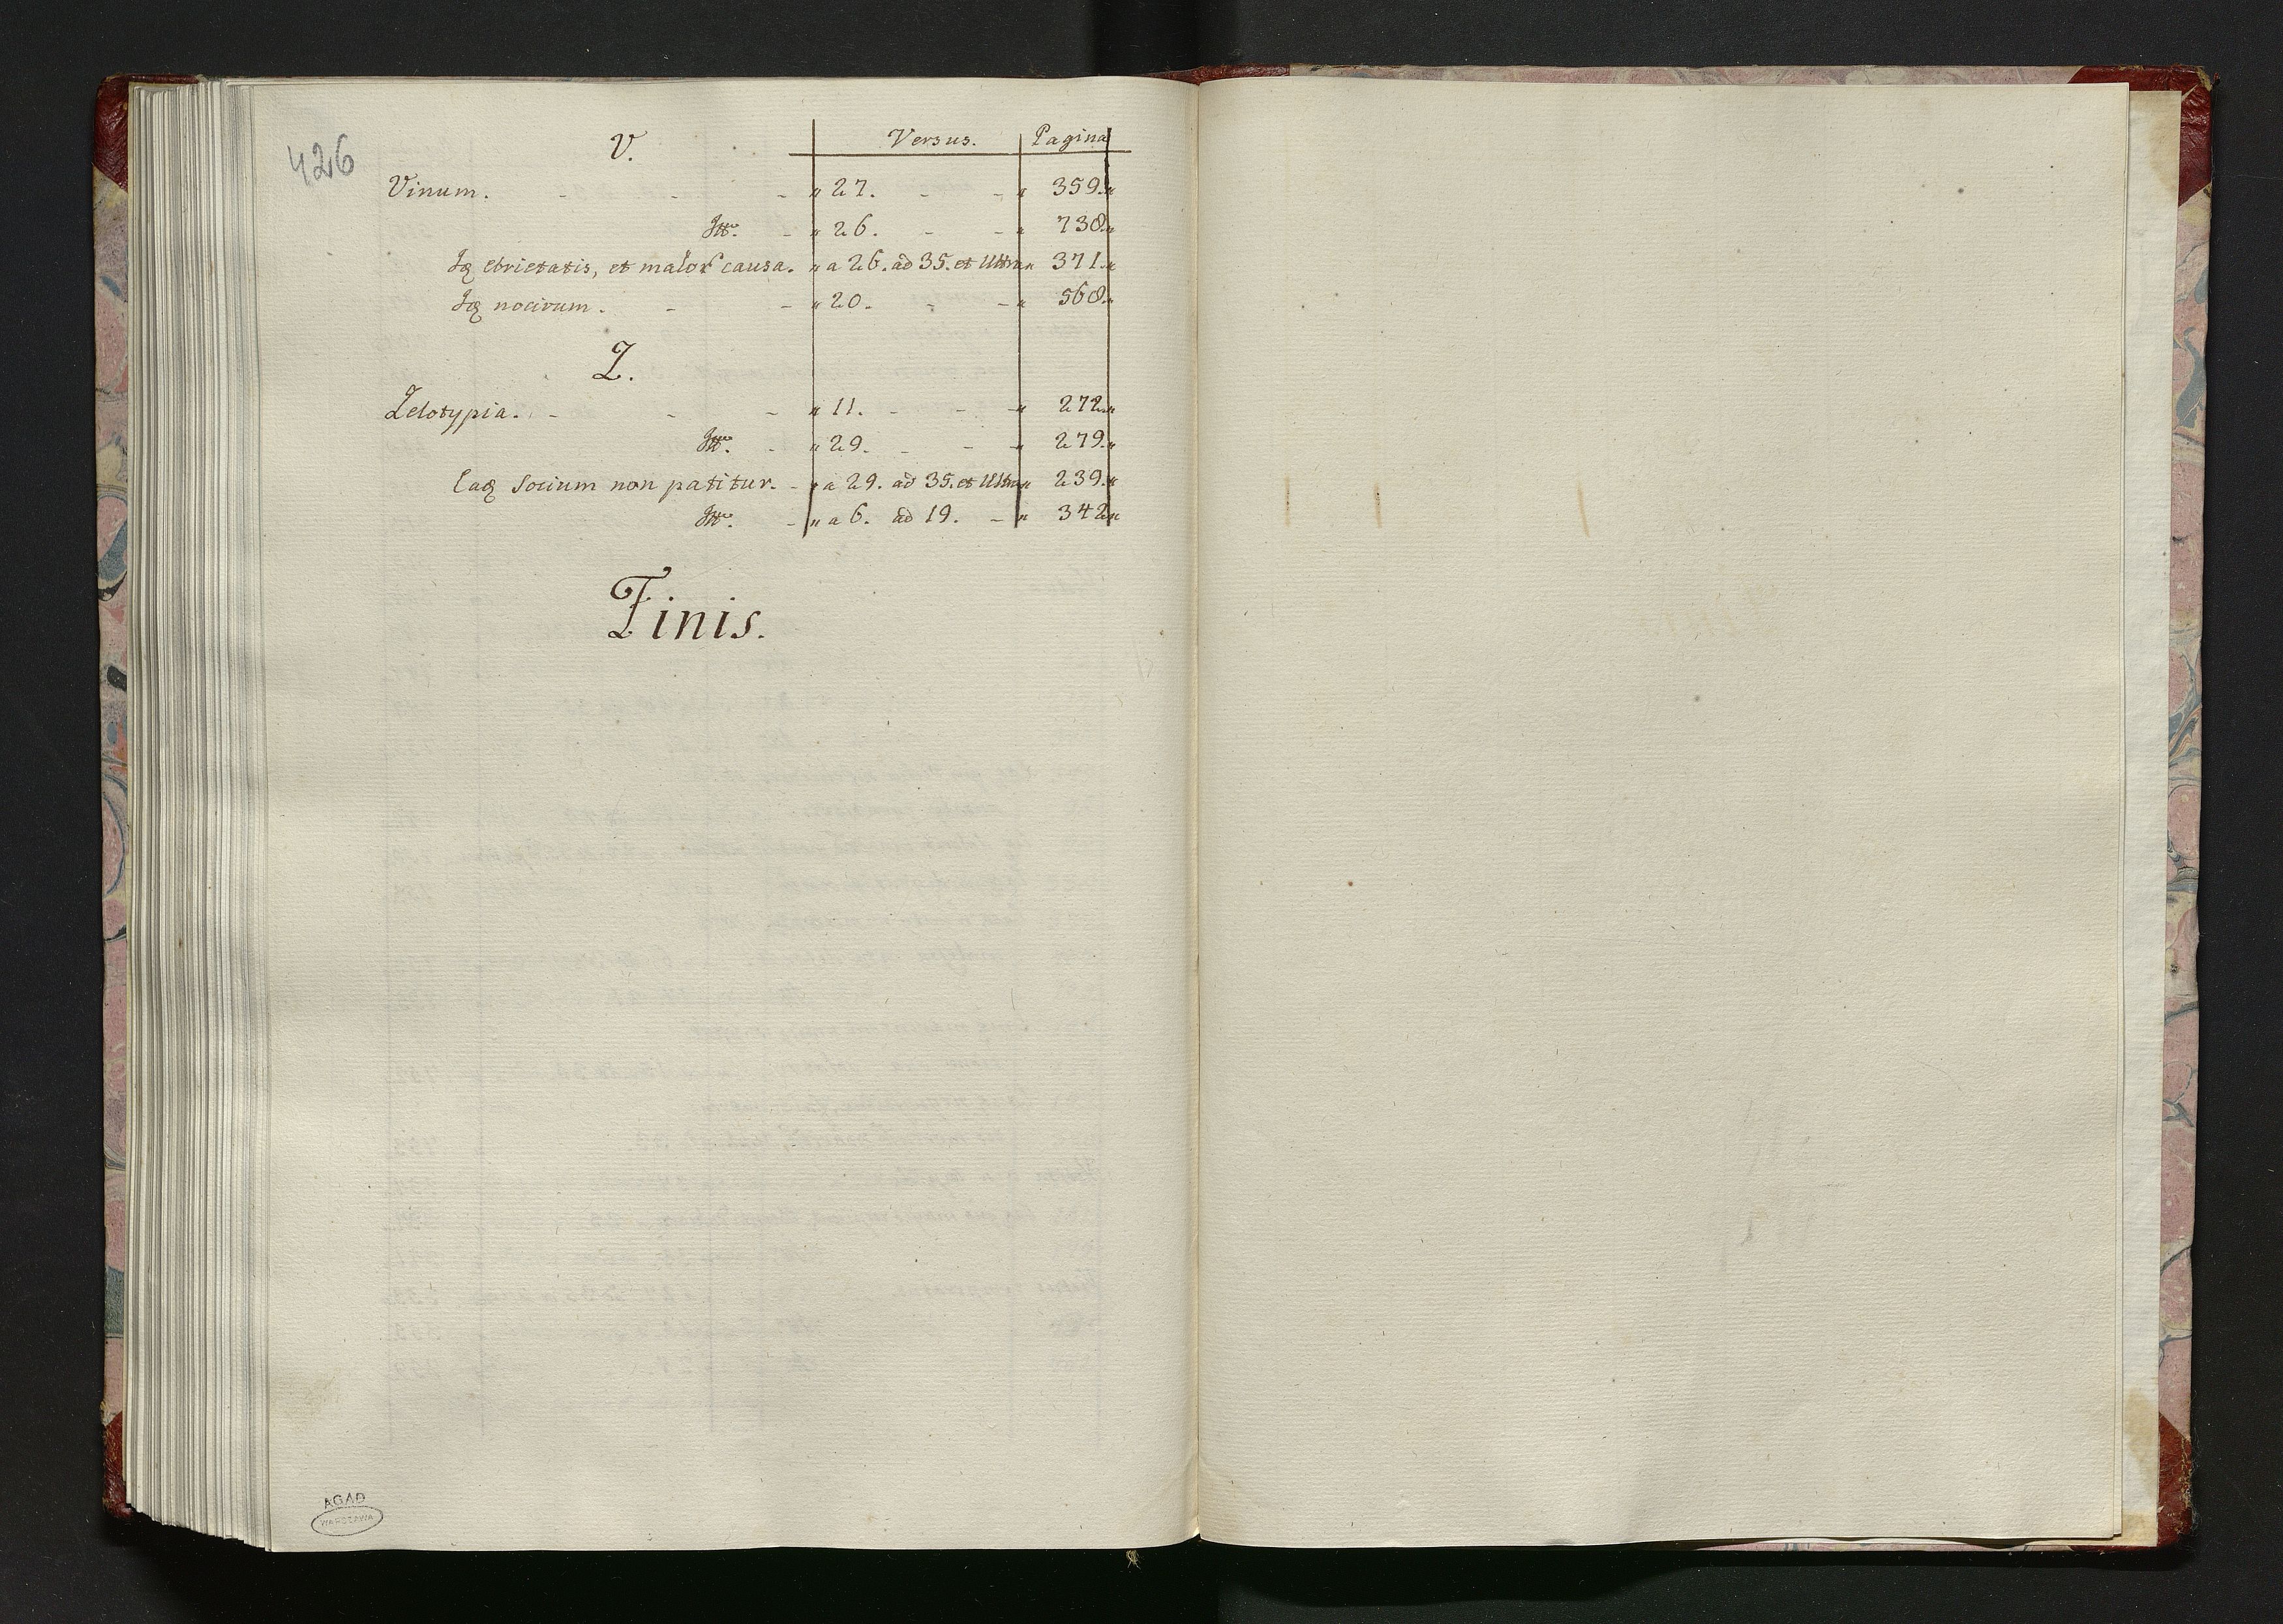 426
V. Versus. Pagina
Vinum. - - - " 27. - - " 359."
Itt. - " 26. - - " 738."
Idq ebrietatis, et malor causa. " a 26. ad 35. et Ultra " 371."
Idq nocivum. - - " 20. - - " 568."
Z.
Zelotypia. - - - " 11. - - " 272."
Itt. - " 29. - - " 279."
Eaq Socium non patitur. - " a 29. ad 35. et Ultra " 239."
Itt. - " a 6. ad 19. - " 342"
Finis.
AGAD
WARSZAWA